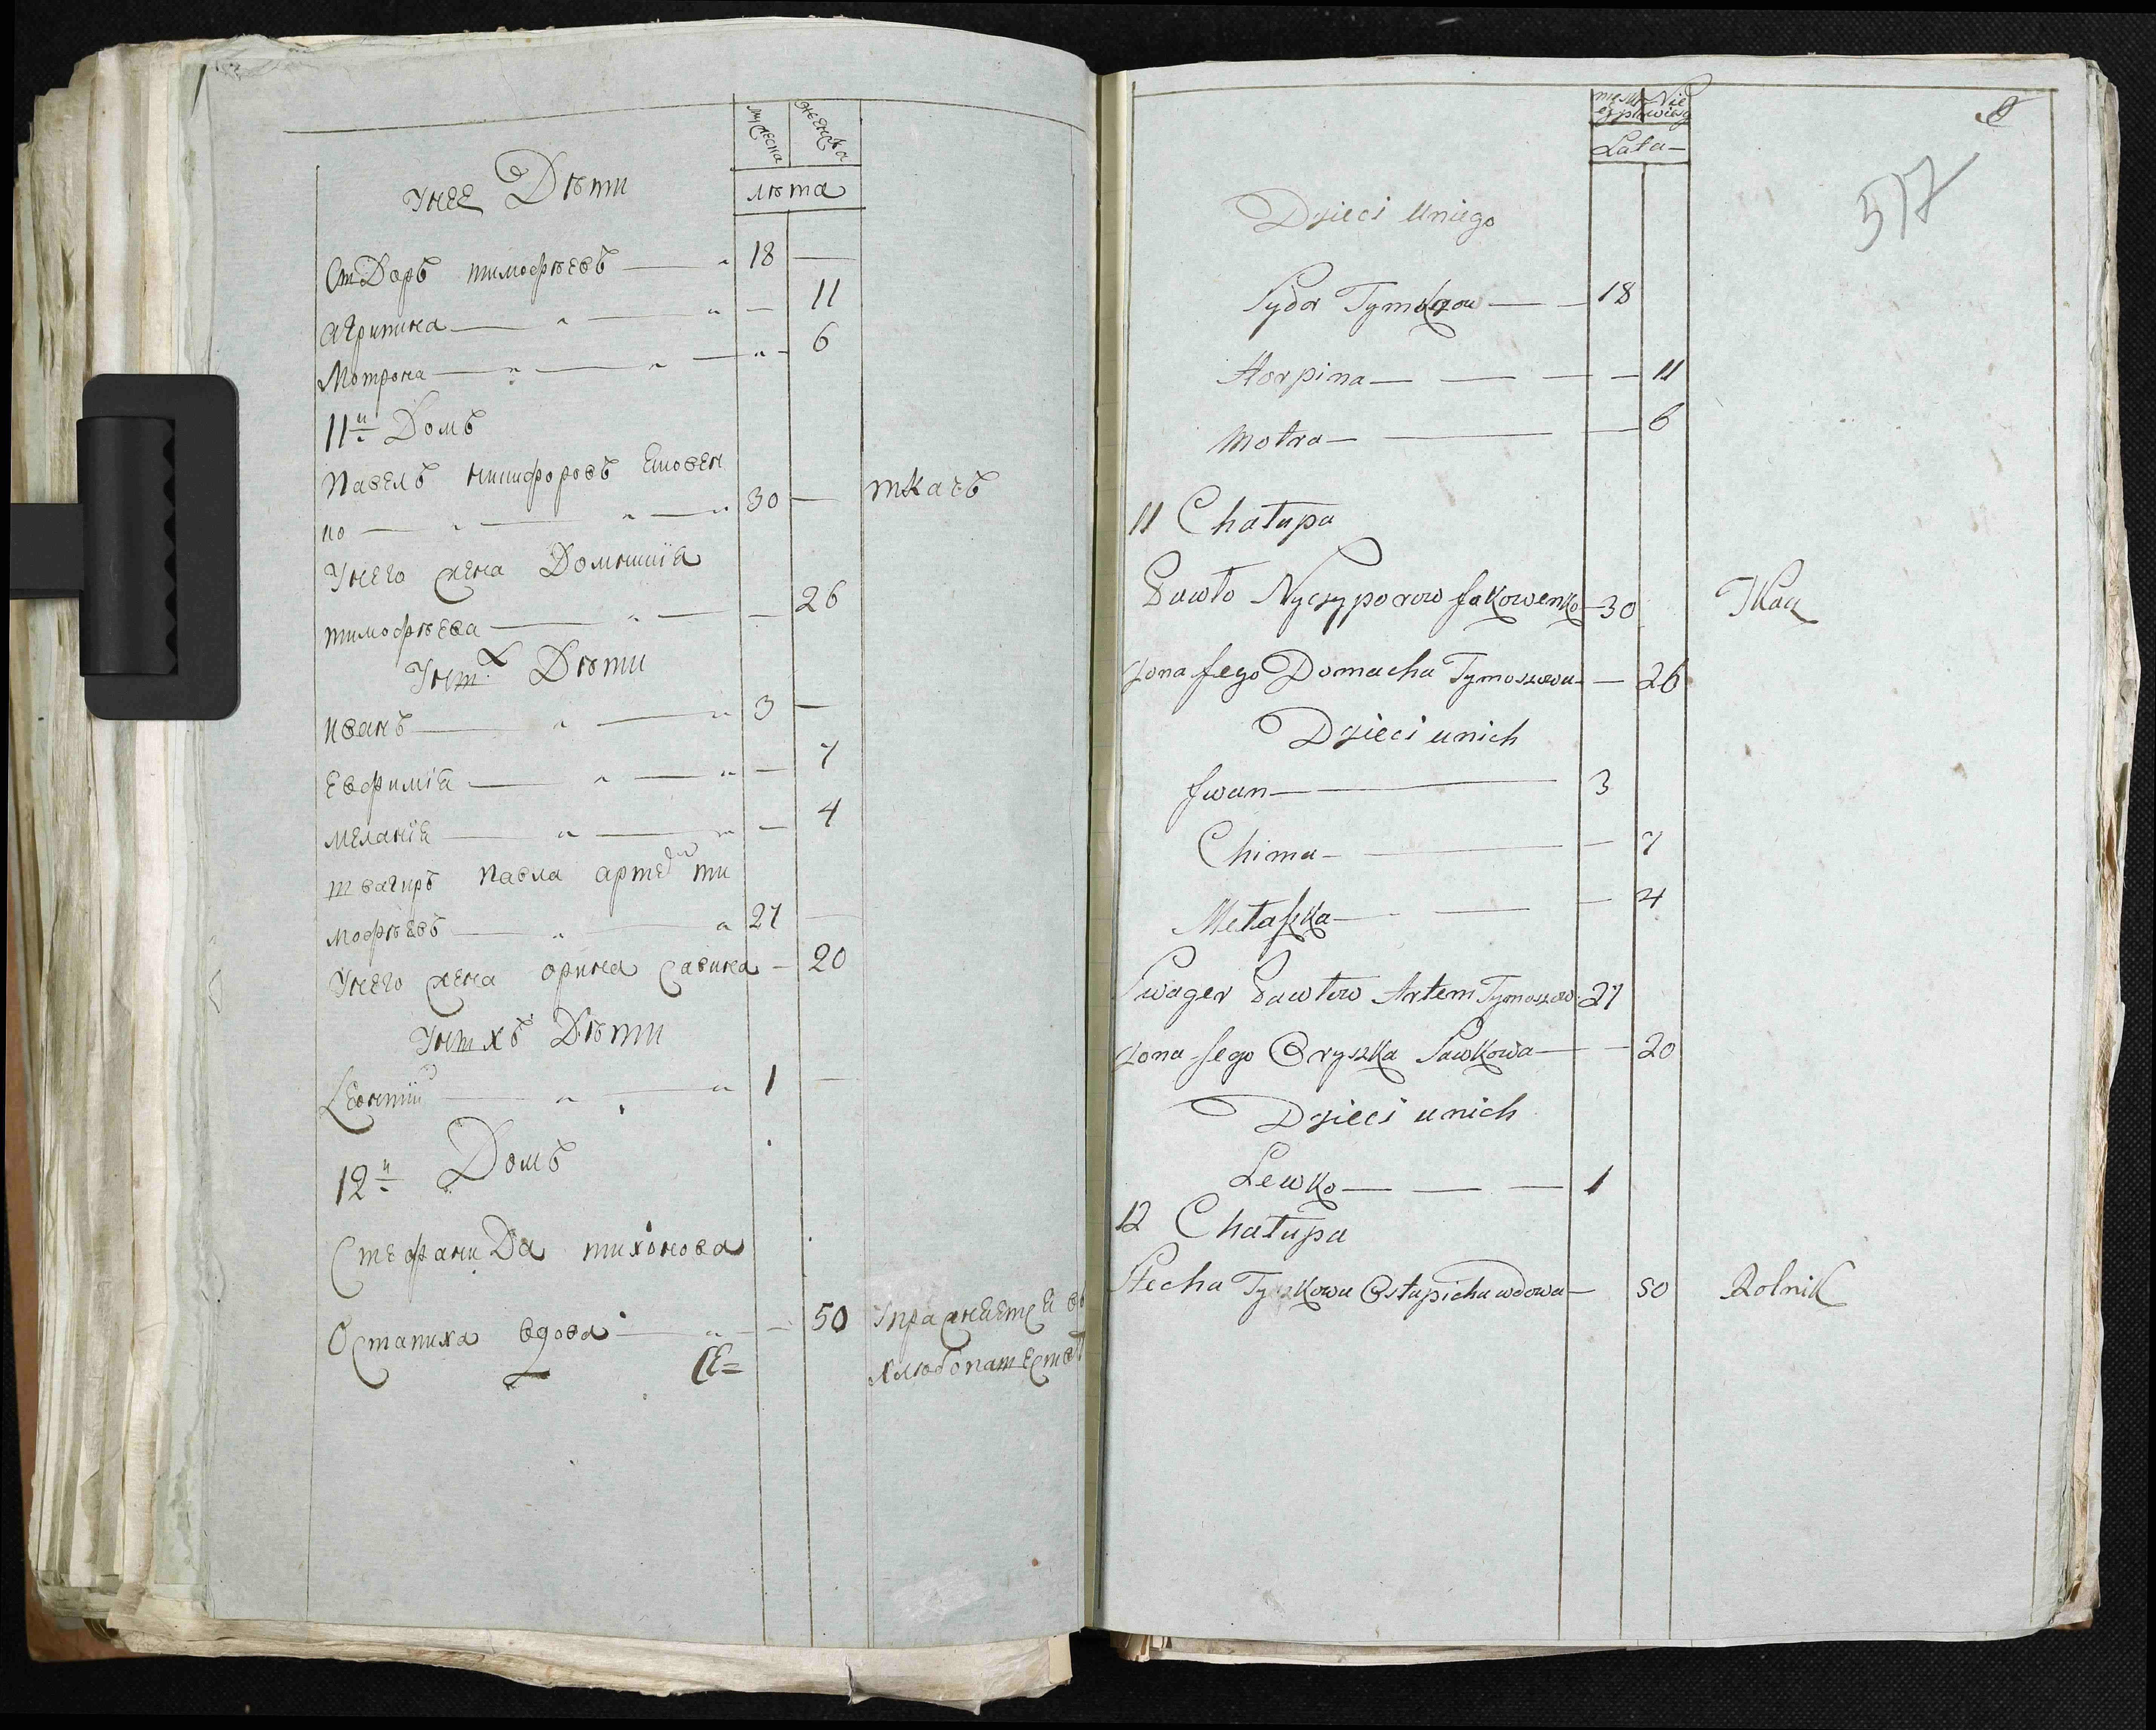 мужеска
женска
лѣта
Унее Дѣти
Сидоръ тимофѣевъ 18
агрипина 11
Мотрона 6
11й Домъ
Павелъ никифоровъ
но 30 ткачъ
Унего жена Домникия
тимофѣева 26
Унихъ Дѣти
Иванъ 3
Евфимія 7
меланія 4
швагиръ павла артемъ ти
мофѣевъ 27
Унего жена орина савина 20
Унихъ Дѣти
Леонтий 1
12й Домъ
Стефанида тихонова
Остапиха вдова 50 Упражняется въ
хлѣбопашествѣ
męsk Nie
Lata
517
Dzieci Uniego
Sydor 18
Horpina 11
Motra 6
11 Chałupa
Pawło Nyczyporow Jakowenko 30 Tkacz
Żona Jego Domacha Tymoszowa 26
Dzieci unich
Jwan 3
Chima 7
Małaszka 4
Swager Pawłow Artem Tymoszow 27
Żona Jego Oryszka Sawkowa 20
Dzieci unich
Lewko 1
12 Chałupa
Stecha Tyszkowa Ostapicha wdowa 50 Rolnik